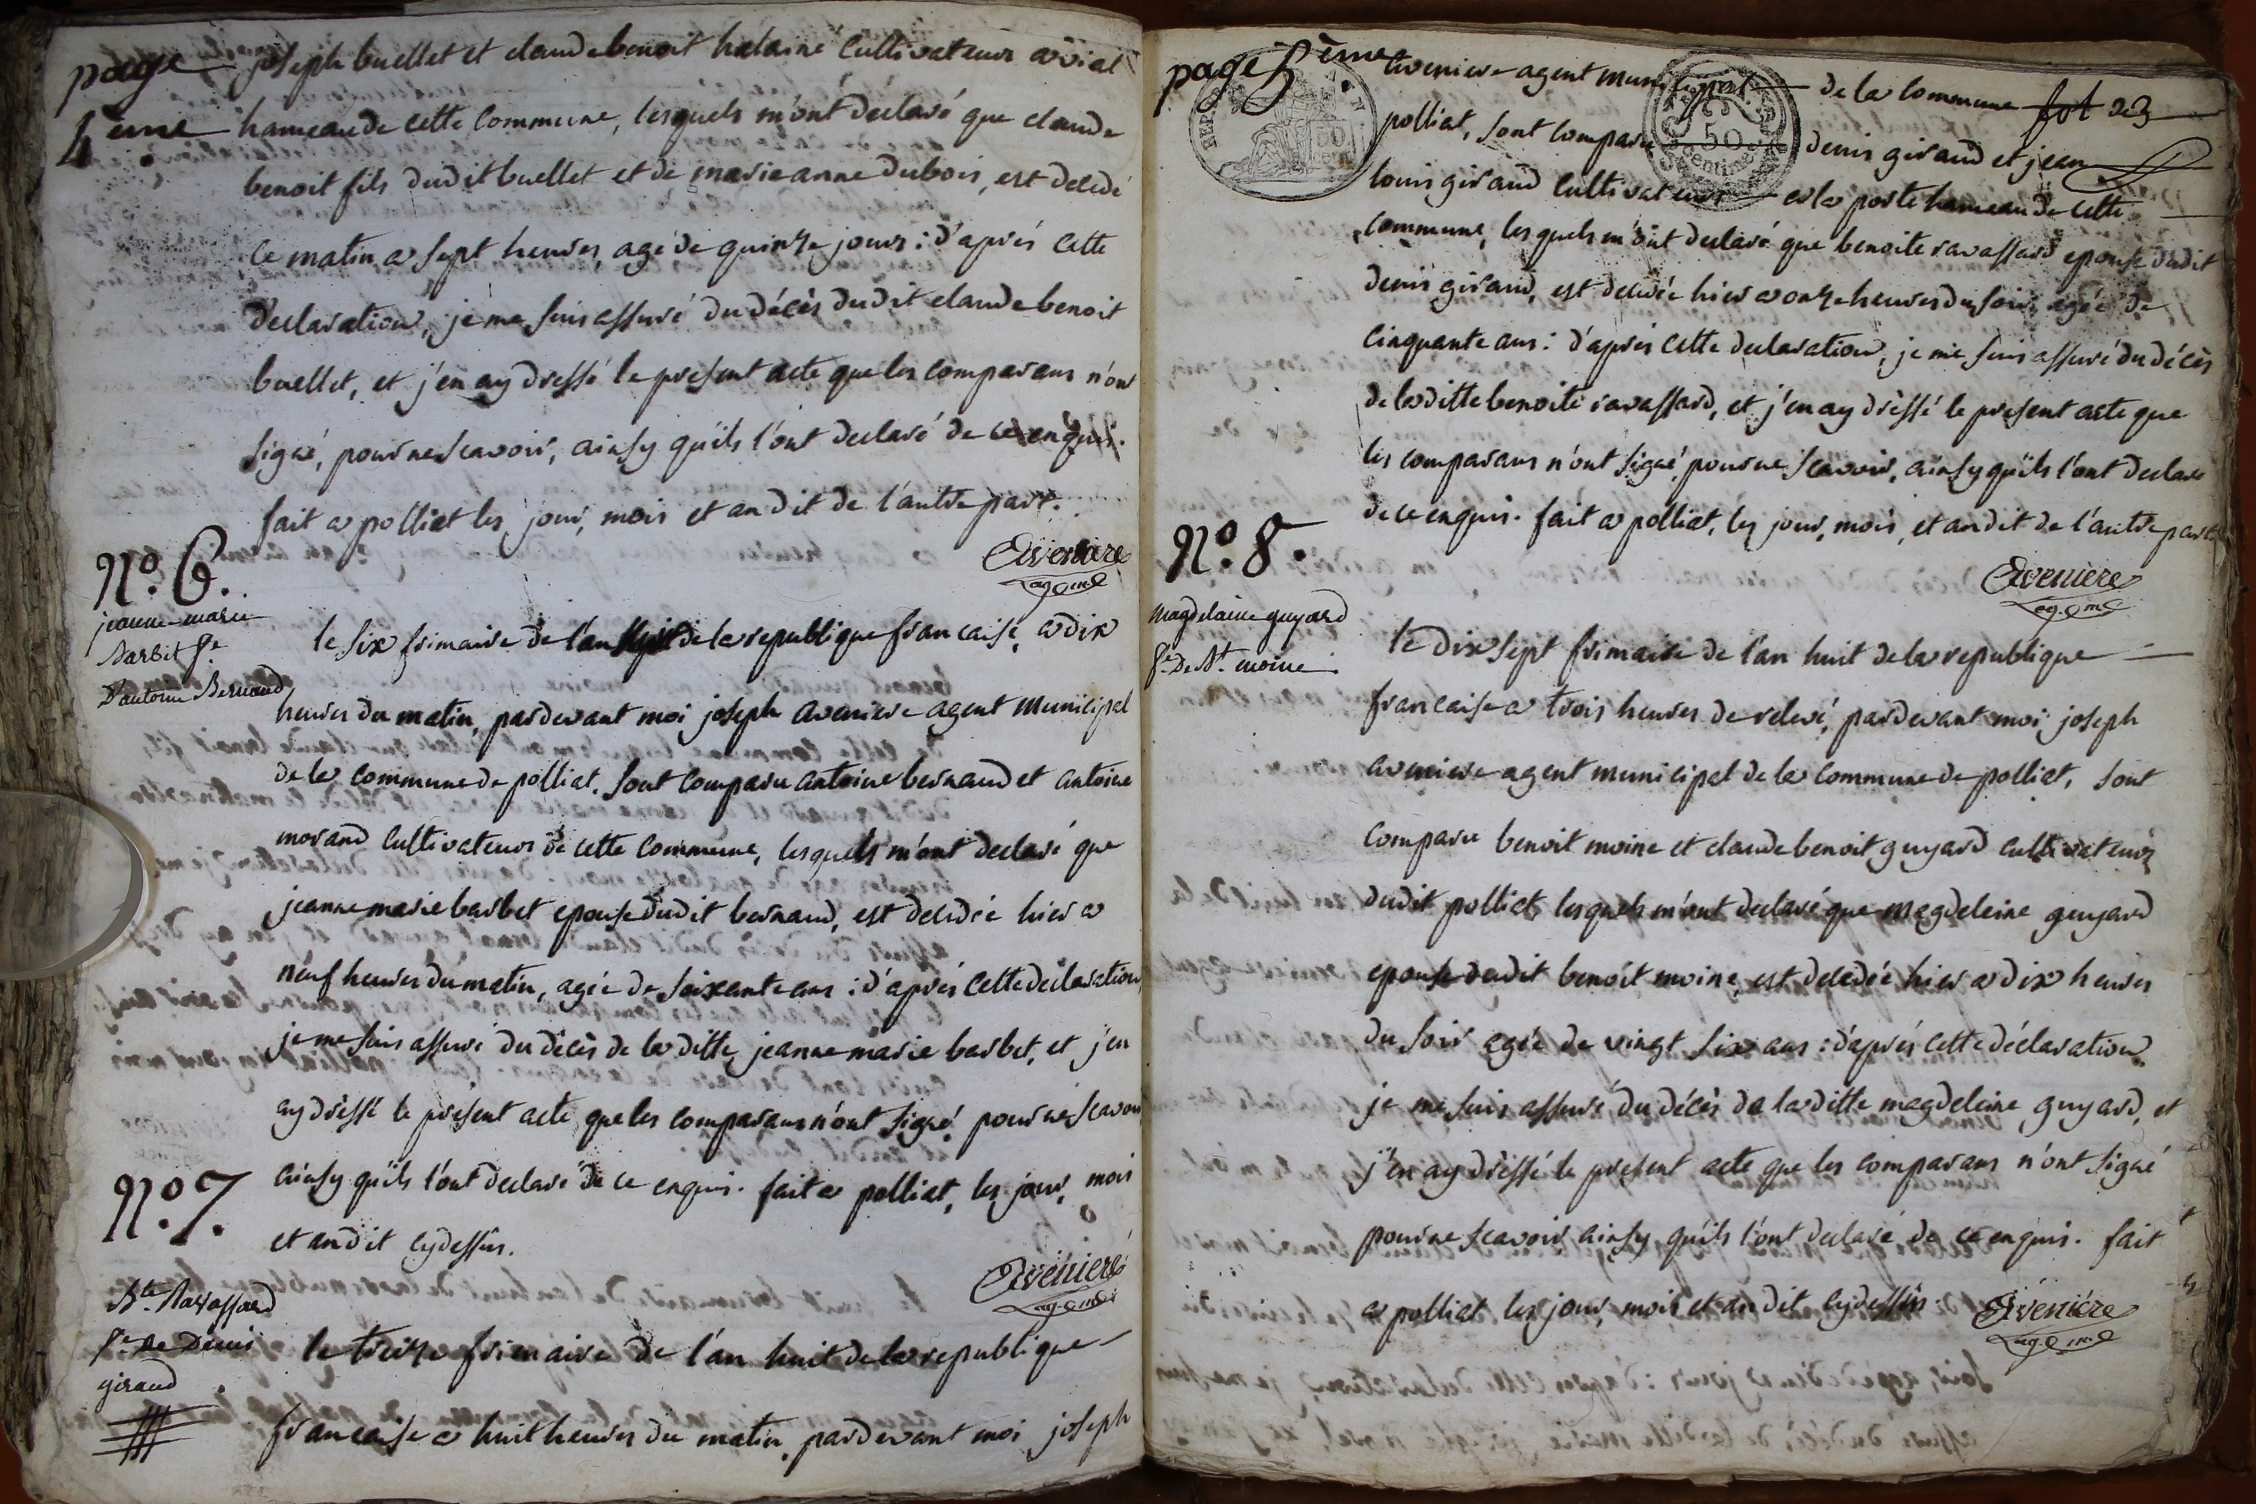 page
4ème
joseph buellet et claude benoit halaine cultivateurs a vial
hameau de cette commune, lesquels m'ont déclaré que claude
benoit fils dudit buellet et de marie anne dubois, est décédé
ce matin a sept heures, agé de quinze jours : d'aprés cette
déclaration, je me suis assuré du décès dudit claude benoit
buellet, et j'en ay dressé le présent acte que les comparans n'ont
signé, pour ne scavoir, ainsy qu'ils l'ont declaré de ce enquis.
fait a polliat les jour, mois et an dit de l'autre part.
Aveniere
ag. m.
N.º 6.
jeanne marie
Barbet f.e
D'antoine Bernand
le six frimaire de l'an huit de la republique francaise, a dix
heures du matin, pardevant moi joseph aveniere agent municipal
de la commune de polliat, sont comparu antoine bernand et antoine
morand cultivateurs de cette commune, lesquels m'ont declaré que
jeanne marie barbet epouse dudit bernand, est decédée hier a
neuf heures du matin, agée de soixante ans : d'aprés cette declaration,
je me suis assuré du décès de la ditte jeanne marie barbet, et j'en
ay dressé le présent acte que les comparans n'ont signé pour ne scavoir
ainsy qu'ils l'ont declaré de ce enquis. fait a polliat, les jour, mois
et an dit cy dessus.
Aveniere
ag. m.
N.º 7.
B.te Ravassard
f.e de Denis
giraud
le treize frimaire de l'an huit de la republique
francaise a huit heures du matin, pardevant moi joseph
page 5ème
aveniere agent municipal de la commune fol 23
polliat, sont comparu denis giraud et jean
louis giraud cultivateurs a la poste hameau de cette
commune, lesquels m'ont declaré que benoite ravassard epouse dudit
denis giraud, est decédée hier a onze heures du soir, agée de
cinquante ans : d'aprés cette declaration, je me suis assuré du décès
de la ditte benoite ravassard, et j'en ay dressé le present acte que
les comparans n'ont signé, pour ne scavoir, ainsy qu'ils l'ont declaré
de ce enquis. fait a polliat, les jour, mois, et an dit de l'autre part
Aveniere
ag. m.
N.º 8.
Magdelaine guyard
f.e De B.t moine
le dix sept frimaire de l'an huit de la republique
francaise a trois heures de relevé, pardevant moi joseph
aveniere agent municipal de la commune de polliat, sont
comparu benoit moine et claude benoit guyard cultivateurs
dudit polliat, lesquels m'ont declaré que magdeleine guyard
epouse dudit benoit moine, est decédée hier a dix heures
du soir agée de vingt six ans : d'aprés cette déclaration
je me suis assuré du décès de la ditte magdeleine guyard, et
j'en ay dressé le present acte que les comparans n'ont signé
pour ne scavoir ainsy qu'ils l'ont declaré de ce enquis. fait
a polliat les jour, mois et an dit cy dessus.
Aveniere
ag. m.